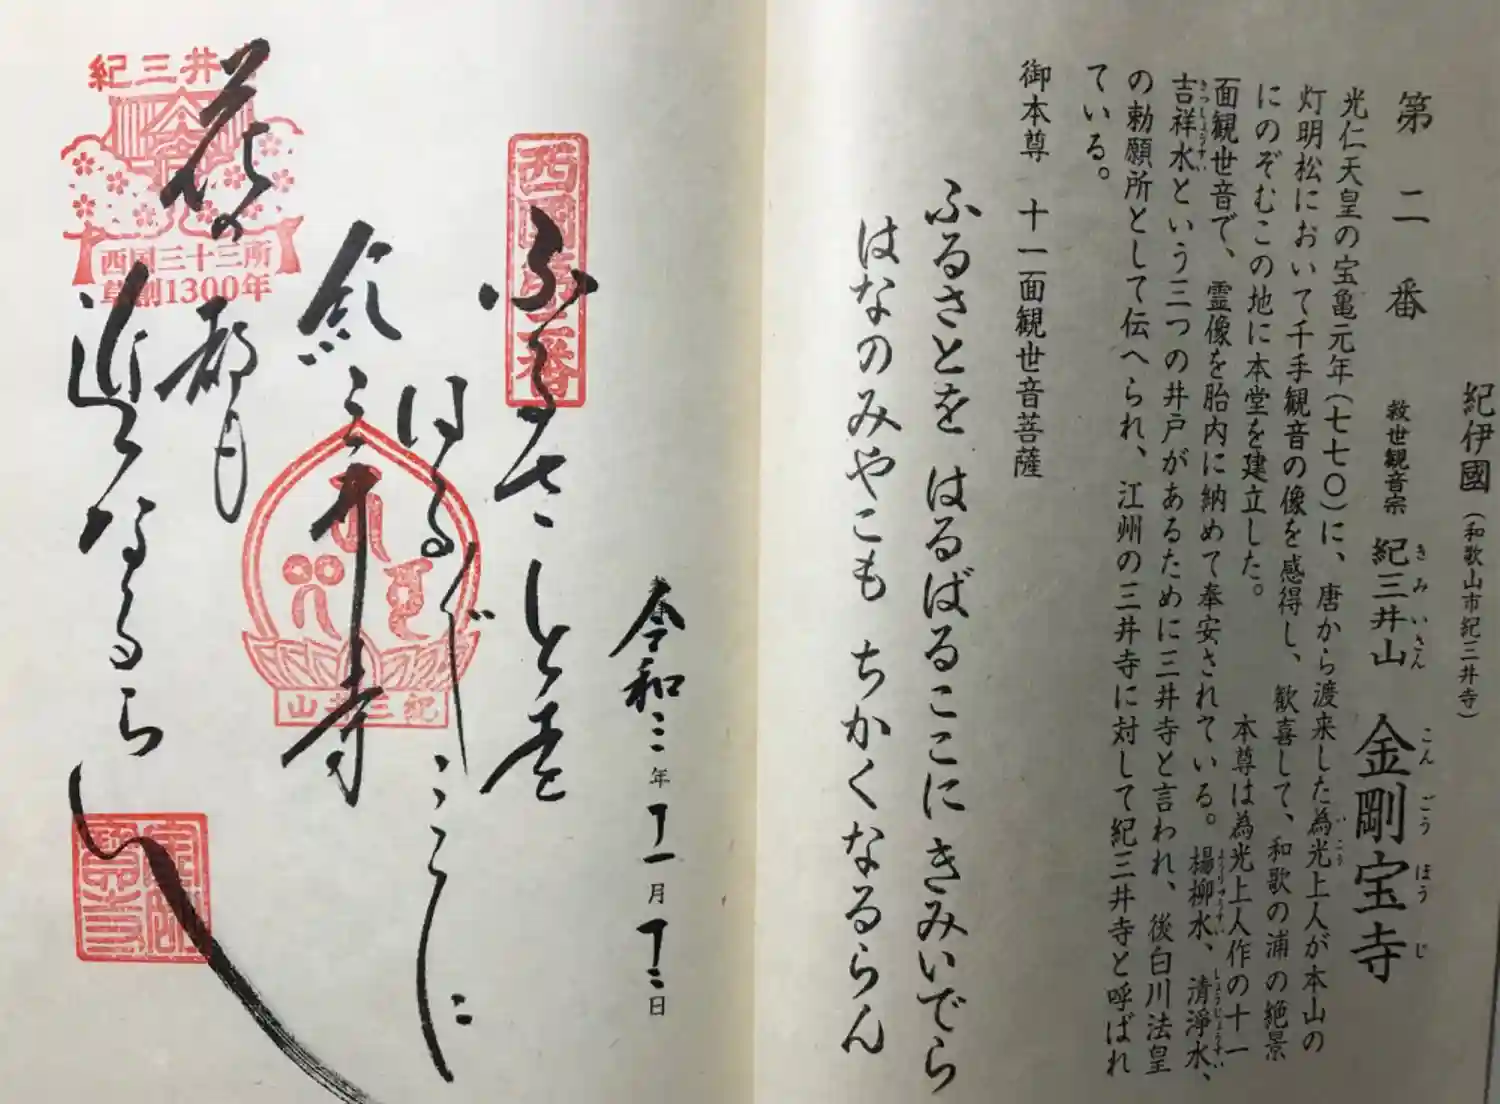 紀伊國(和歌山市紀三井寺)
第二番
救世観音宗 紀三井山 金剛宝寺
きみいさん
こんごうほうじ
光仁天皇の宝亀元年(七七〇)に、唐から渡来した為光上人が本山の
いこう
灯明松において千手観音の像を感得し、歓喜して、和歌の浦の絶景
にのぞむこの地に本堂を建立した。 本尊は為光上人作の十一
面観世音で、霊像を胎内に納めて奉安されている。楊柳水、清浄水、
ようりゅうすい
しょうじょうすい
吉祥水という三つの井戸があるために三井寺と言われ、後白川法皇
きっしょうすい
の勅願所として伝へられ、江州の三井寺に対して紀三井寺と呼ばれ
ている。
御本尊 十一面観世音菩薩
ふるさとを はるばるここにきみいでら
はなのみやこも ちかくなるらん
令和二年十一月十二日
西國第二番
ふるさとを
はるばるここに
紀三井寺
花の都も
近くなるらん
紀三井寺
西国三十三所
草創1300年
紀三井山